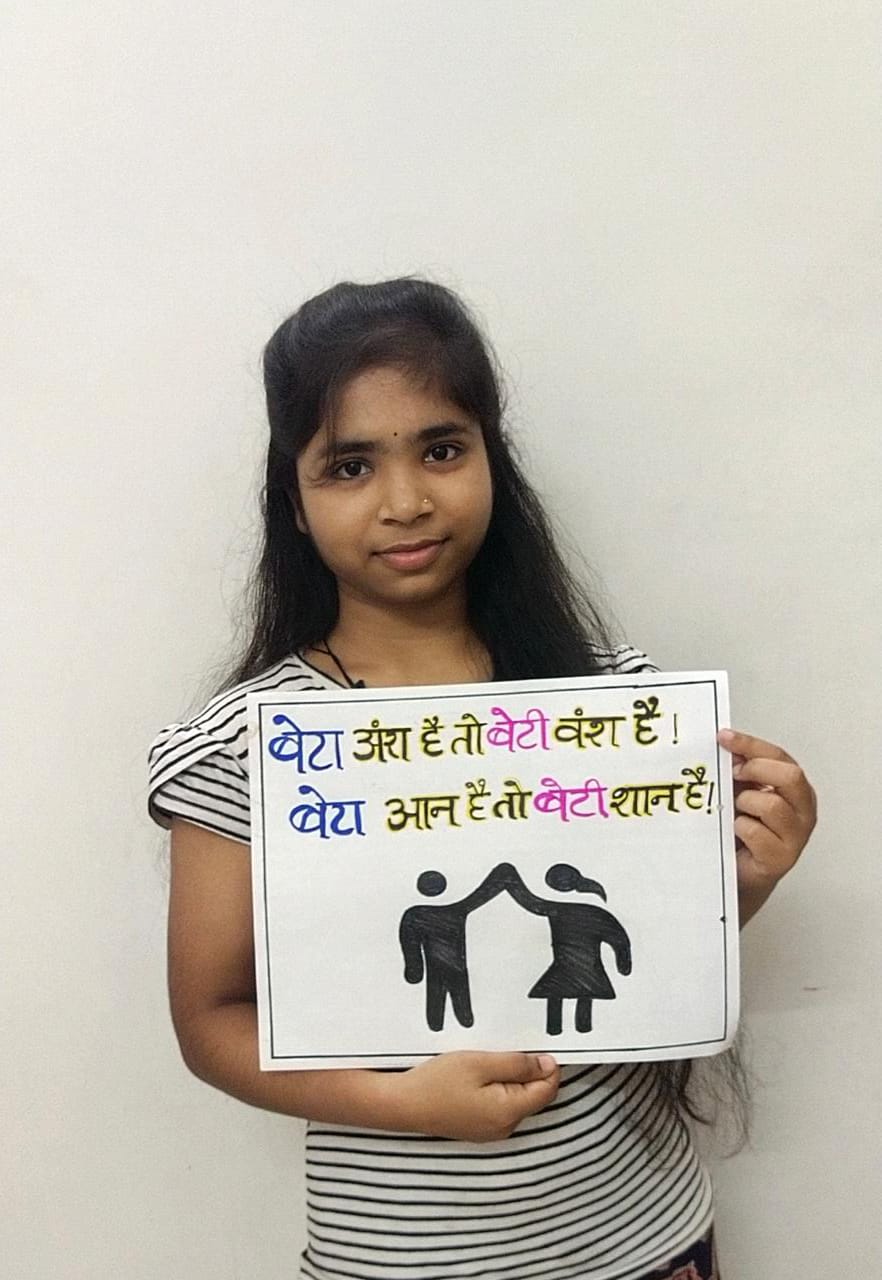 बेटा अंश है तो बेटी वंश है!
बेटा आन है तो बेटी शान है!